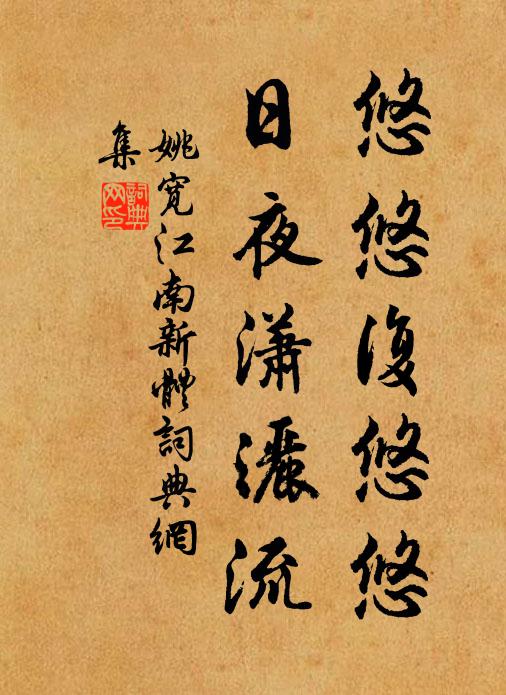 悠悠復悠悠
日夜瀟灑流
姚寬江南新體詞典網
集
詞典
网印